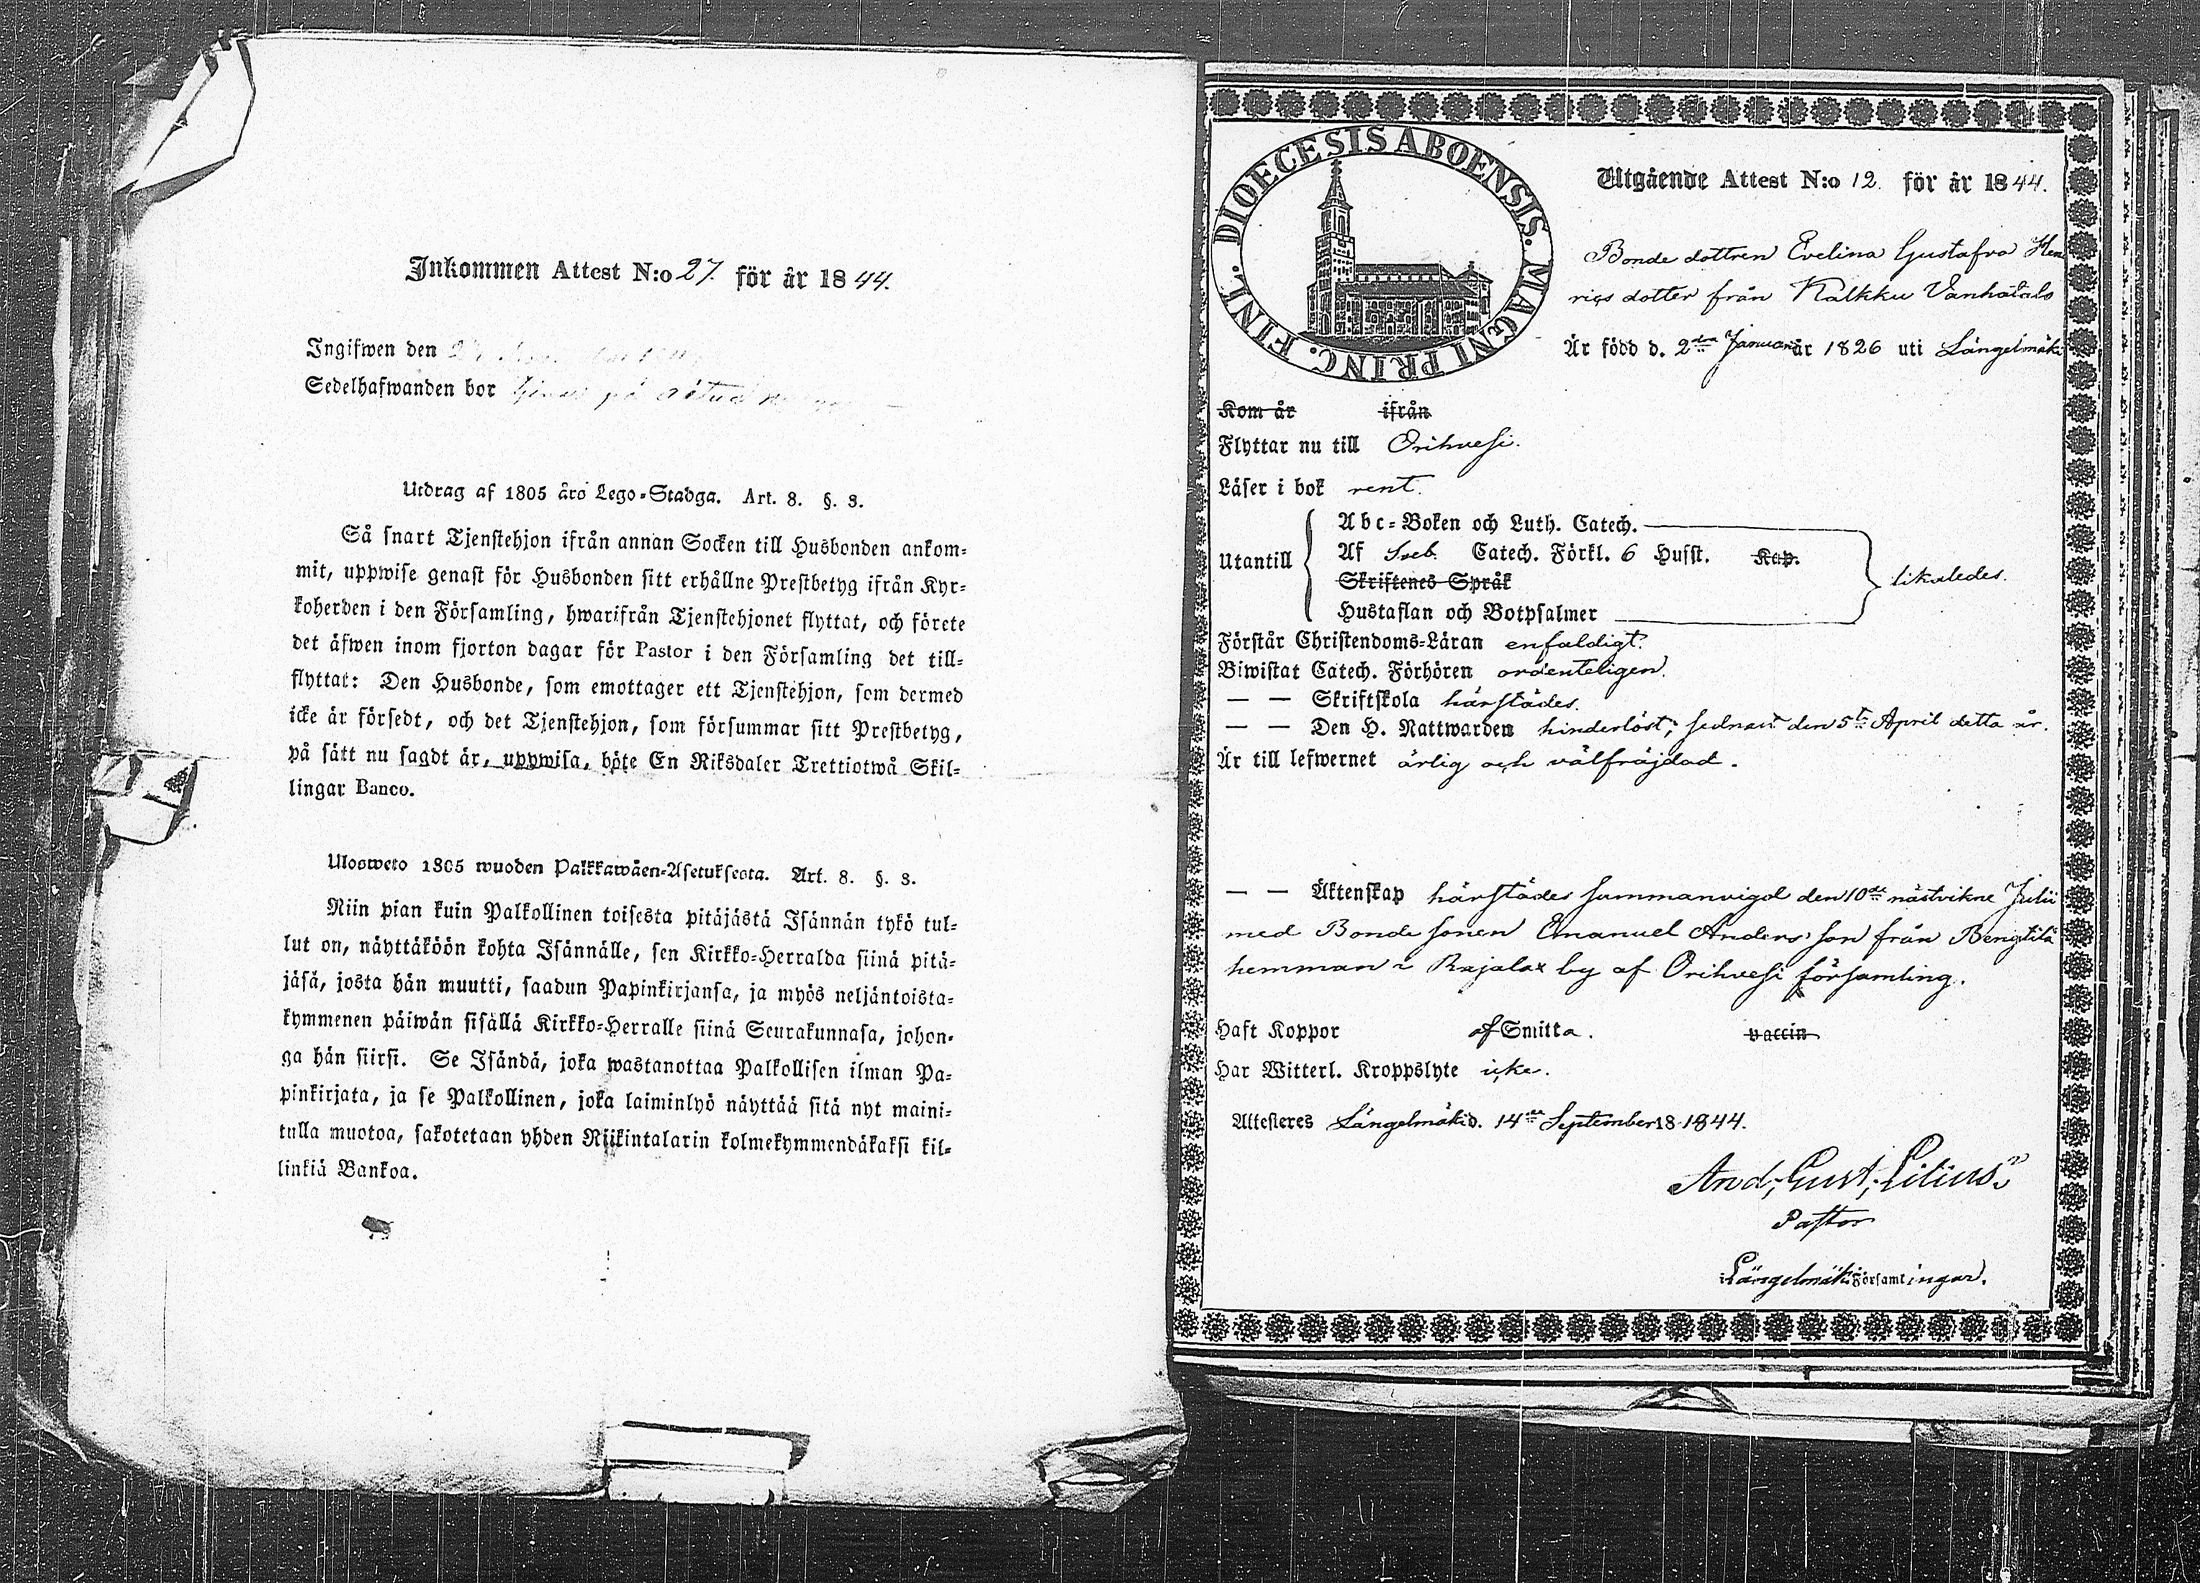 Inkommen Attest N:o 27. för år 1844.
Ingifwen den
Sedelhafwanden bor
Utdrag af 1805 års Lego-Stadga. Art. 8. §. 3.
Så snart Tjenstehjon ifrån annan Socken till Husbonden ankom-
mit, uppwise genast för Husbonden sitt erhållne Prestbetyg ifrån Kyr-
koherden i den Församling, hwarifrån Tjenstehjonet flyttat, och förete
det äfwen inom fjorton dagar för Pastor i den Församling det till-
flyttat: Den Husbonde, som emottager ett Tjenstehjon, som dermed
icke är försedt, och det Tjenstehjon, som försummar sitt Prestbetyg,
på sätt nu sagdt är, uppwisa, böte En Riksdaler Trettiotwå Skil-
lingar Banco.
Ulosweto 1805 wuoden Palkkawäen-Asetuksesta. Art. 8. §. 3.
Niin pian kuin Palkollinen toisesta pitäjästä Isännän tykö tul-
lut on, näyttäköön kohta Isännälle, sen Kirkko-Herralda siinä pitä-
jäsä, josta hän muutti, saadun Papinkirjansa, ja myös neljäntoista-
kymmenen päiwän sisällä Kirkko-Herralle siinä Seurakunnasa, johon-
ga hän siirsi. Se Isändä, joka wastanottaa Palkollisen ilman Pa-
pinkirjata, ja se Palkollinen, joka laiminlyö näyttää sitä nyt maini-
tulla muotoa, sakotetaan yhden Riikintalarin kolmekymmendäkaksi kil-
linkiä Bankoa.
DIOECESIS ABOENSIS. MAGNI PRINC. FINL.
Utgående Attest N:o 12. för år 1844.
Bonde dottren Evelina Gustafva Hen
rics dotter från Kalkku Vanhatalo
Är född d. 2dra Januari år 1826 uti Längelmäki
Kom år ifrån
Flyttar nu till Orihvesi.
Läser i bok rent.
Utantill
Abc-Boken och Luth. Catech.
Af Sveb. Catech. Förkl. 6 Husst. Kap.
Skriftenes Språk
Hustaflan och Botpsalmer
likaledes.
Förstår Christendoms-Läran enfaldigt.
Biwistat Catech. Förhören ordenteligen.
— — Skriftskola härstädes.
— — Den H. Nattwarden hinderlöst; sednast den 5te April detta år.
Är till lefwernet ärlig och välfräjdad.
— — Äktenskap härstädes sammanvigd den 10de nästvikne Julii
med Bonde sonen Emanuel Anders son från Bengtilä
hemman i Rajalax by af Orihvesi församling.
Haft Koppor af Smitta. vaccin
Har Witterl. Kroppslyte icke.
Attesteres Längelmäki d. 14de September 18 1844.
And. Gust. Lilius
Pastor
i Längelmäki Församlingar.